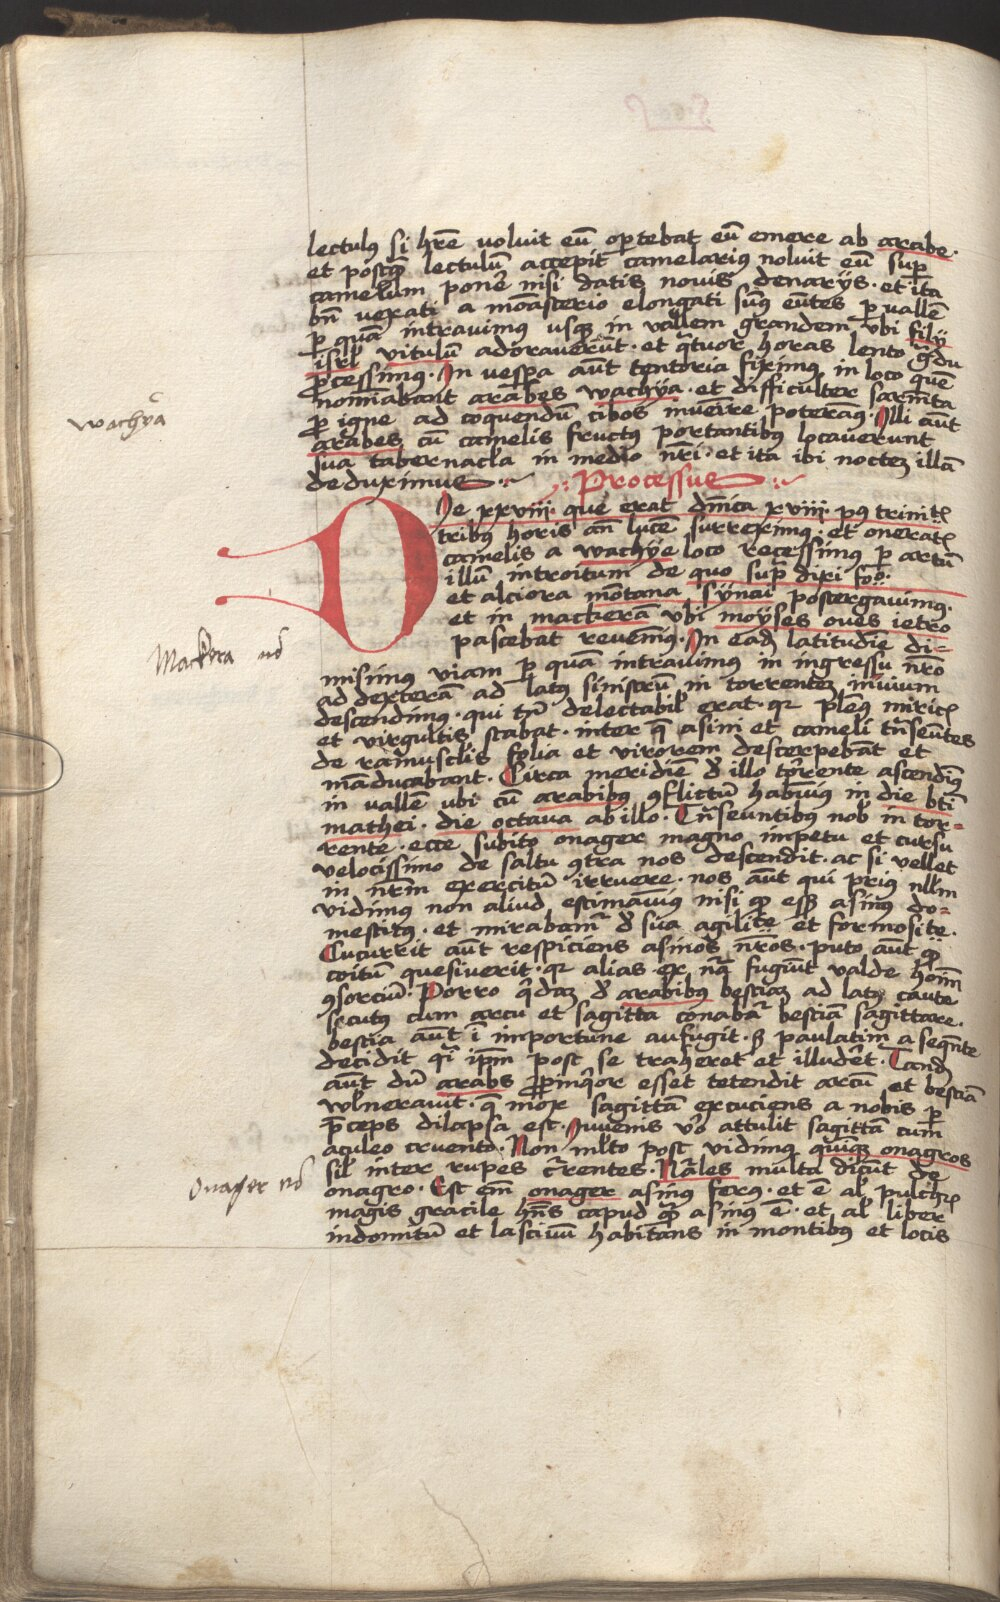 lectulꝰ si hr̄e voluit eū oportebat eū emere ab arabe·
et postqꝫ lectulū accepit camelariꝰ noluit eū suꝑ
camelum ponē nisi datis novis denarijs· et ita
bn̄ vexati a monasterio elongati sumꝰ euntes ꝑ vallē
ꝑ quā intravimus usqꝫ in vallem grandem vbi filij
isrl̄ vitulū adoraverūt· et qͣtuor horas lento gͣdu
ꝓcessimus· In vespa aut̄ tentoria fiximꝰ in loco quē
nominabant arabes wachya· et difficulter sarmēta
ꝓ igne ad coquendū cibos invenire poteramꝰ Illi aūt
arabes cū camelis fructꝰ portantibꝰ locaverunt
sua tabernacl̄a in medio nr̄i· et ita ibi noctez illā
deduximus·
Processus
Wachya
Die xxviii· que erat dn̄ica xviii· pꝰ trinit̄
tribus horis an̄ lucē surreximꝰ· et onerat̄
camelis a wachye loco recessimꝰ ꝑ artū
illū introitum de quo supͣ dixi fo·
et alciora mōtana synai postergavimꝰ·
et in mackerā vbi moyses oves ietro
pascebat revenimꝰ· In eadꝫ latitudīe di=
Mackera nō
misimꝰ viam ꝑ quā intravimus in ingressu nr̄o
ad dexterā ad latꝰ sinistrū in torrentez invium
descendimꝰ· qui tn̄ delectabil̄ erat· qꝛ plenꝰ miric̄
et virgultis stabat· inter q̄ asini et cameli trn̄seuntes
de ramusclis folia et virorem descerpebāt et
māducabant· Circa meridiē de illo torrente ascendimꝰ
in vallē ubi cū arabibꝰ ꝯflictū habuimꝰ in die bti
mathei· die octava ab illo· Trn̄seuntibus nob̄ in tor=
rente· ecce subito onager magno impetu et cursu
velocissimo de saltu ꝯtra nos descendit· ac si vellet
in nr̄m exercitū irruere· nos aūt qui prius nll̄m
vidimꝰ non aliud estimavimꝰ nisi qꝫ esset asinꝰ do=
mesticꝰ· et mirabamͬ de sua agilite et formosite·
Cucurrit aūt respiciens asinos nr̄os· puto aūt qꝫ
coitū quesiverit· qꝛ alias ex nͣ fugiūt valde hoīm
ꝯsorciū· Porro qͥdaz de arabibꝰ bestiaz ad latꝰ caute
secutꝰ cum arcu et sagitta conabaͬ bestiā sagittare·
bestia aūt ī importune aufugit· sꝫ paulatim a seqnte
decidit qͣ ip̄m post se traheret et illuderet· Tandē
aūt dū arabs ꝓpinqͥor esset tetendit arcū et bestiā
vulneravit· q̄ mox sagittā excuciens a nobis ꝑ
p̄ceps dilapsa est· Iuvenis v̄o attulit sagittā cum
aculeo cruento· Non mlt̄o post vidimꝰ quinqꝫ onagros
sil̄ inter rupes c̄rentes· Nāles multa dicūt de
Onager nō
onagro· Est em̄ onager asinꝰ ferꝰ· et ē al̄ pulchr̄
magis gracile hn̄s capud qͣꝫ asinꝰ ē· et al̄ liber
indomitū et lascivū habitans in montibꝰ et locis